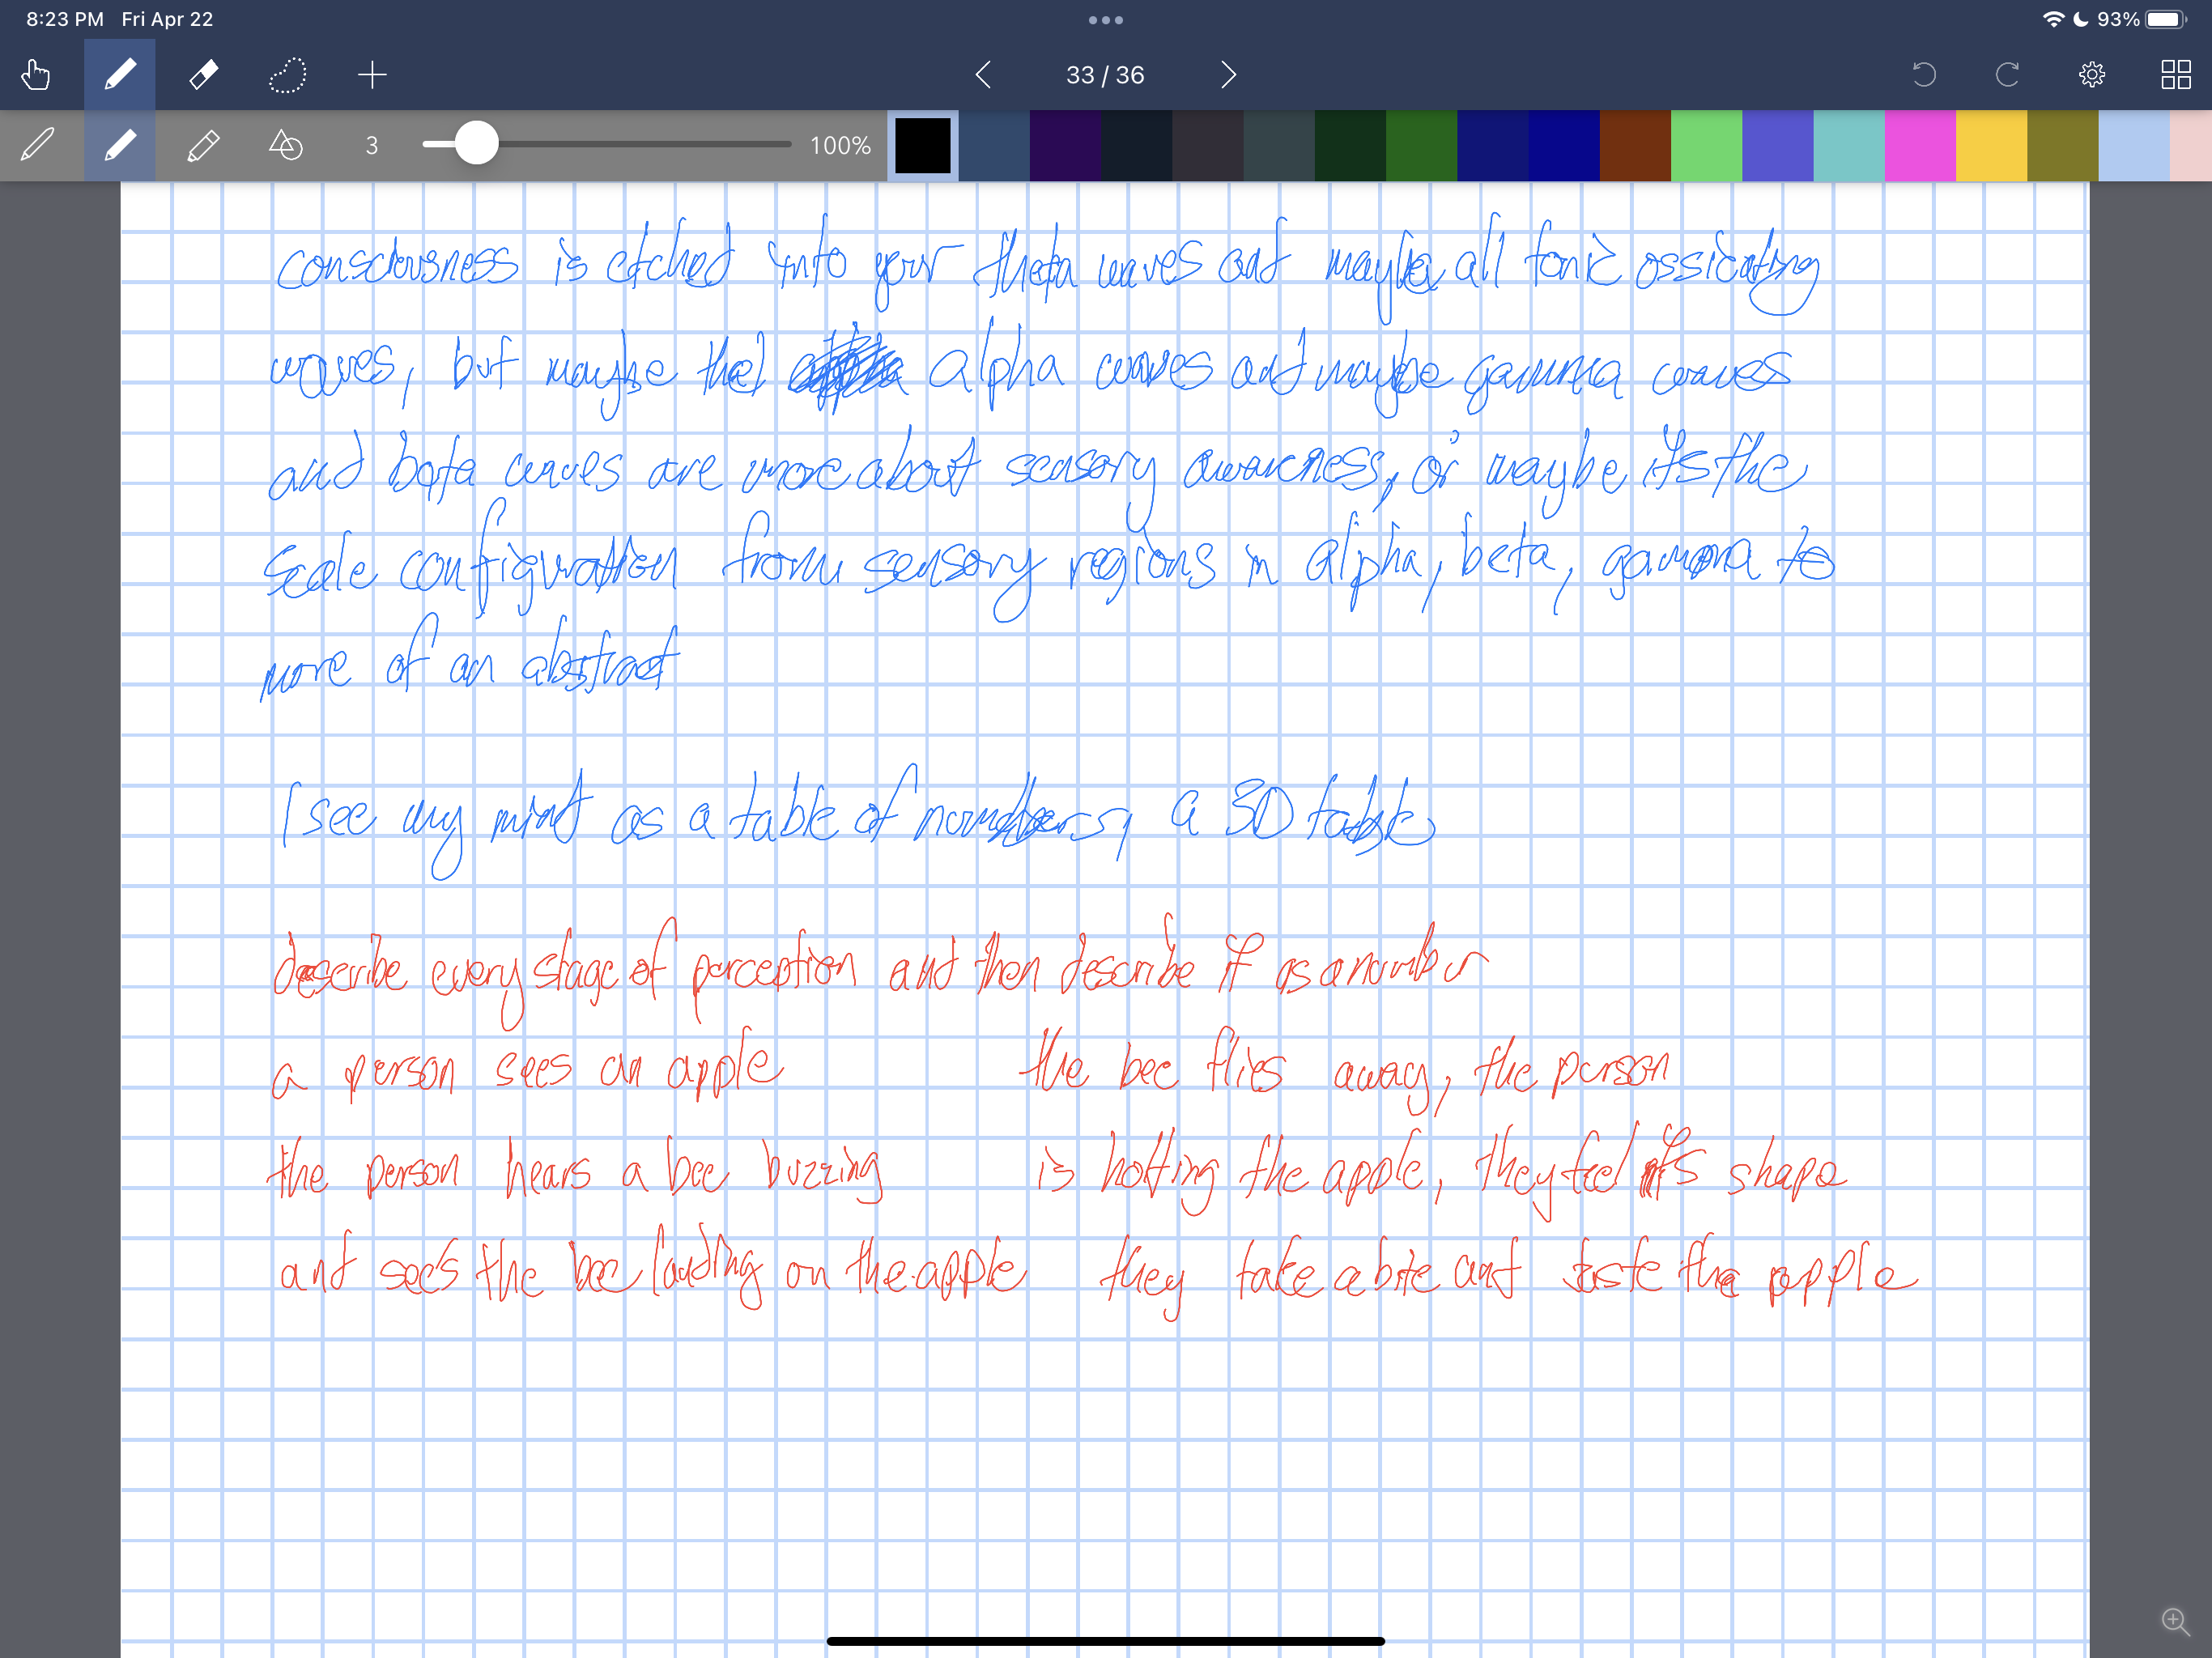 8:23 PM Fri Apr 22
93%
33 / 36
3
100%
consciousness is etched into your theta waves and maybe all tonic ossicating
waves, but maybe the alpha waves and maybe gamma waves
and beta waves are more about sensory awareness, or maybe its the
scale configuration from sensory regions in alpha, beta, gamma to
more of an abstract
I see my mind as a table of numbers, a 3D table
describe every stage of perception and then describe it as a number
a person sees an apple
the person hears a bee buzzing
and sees the bee landing on the apple
the bee flies away, the person
is holding the apple, they feel its shape
they take a bite and taste the apple